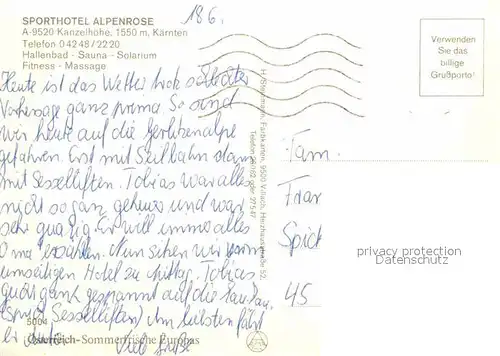 SPORTHOTEL ALPENROSE
A-9520 Kanzelhöhe, 1550 m, Kärnten
Telefon 0 42 48 / 22 20
Hallenbad - Sauna - Solarium
Fitness - Massage
18 6.
Verwenden
Sie das
billige
Grußporto!
Heute ist das Wetter trotz schlechter
Vorhersage ganz prima. So sind
wir heute auf die Gerlitzenalpe
gefahren. Erst mit Seilbahn dann
mit Sesselliften. Tobias war alles
nicht so ganz geheuer und war
sehr quatig. Er will immer alles
Oma erzählen. Nun sitzen wir vorm
umseitigen Hotel zu Mittag. Tobias
guckt ganz gespannt auf die
(sprich Sessellifte) Am liebsten fährt
er
Viele Grüße
5004
Österreich-Sommerfrische Europas
Fam.
45
privacy protection
Datenschutz